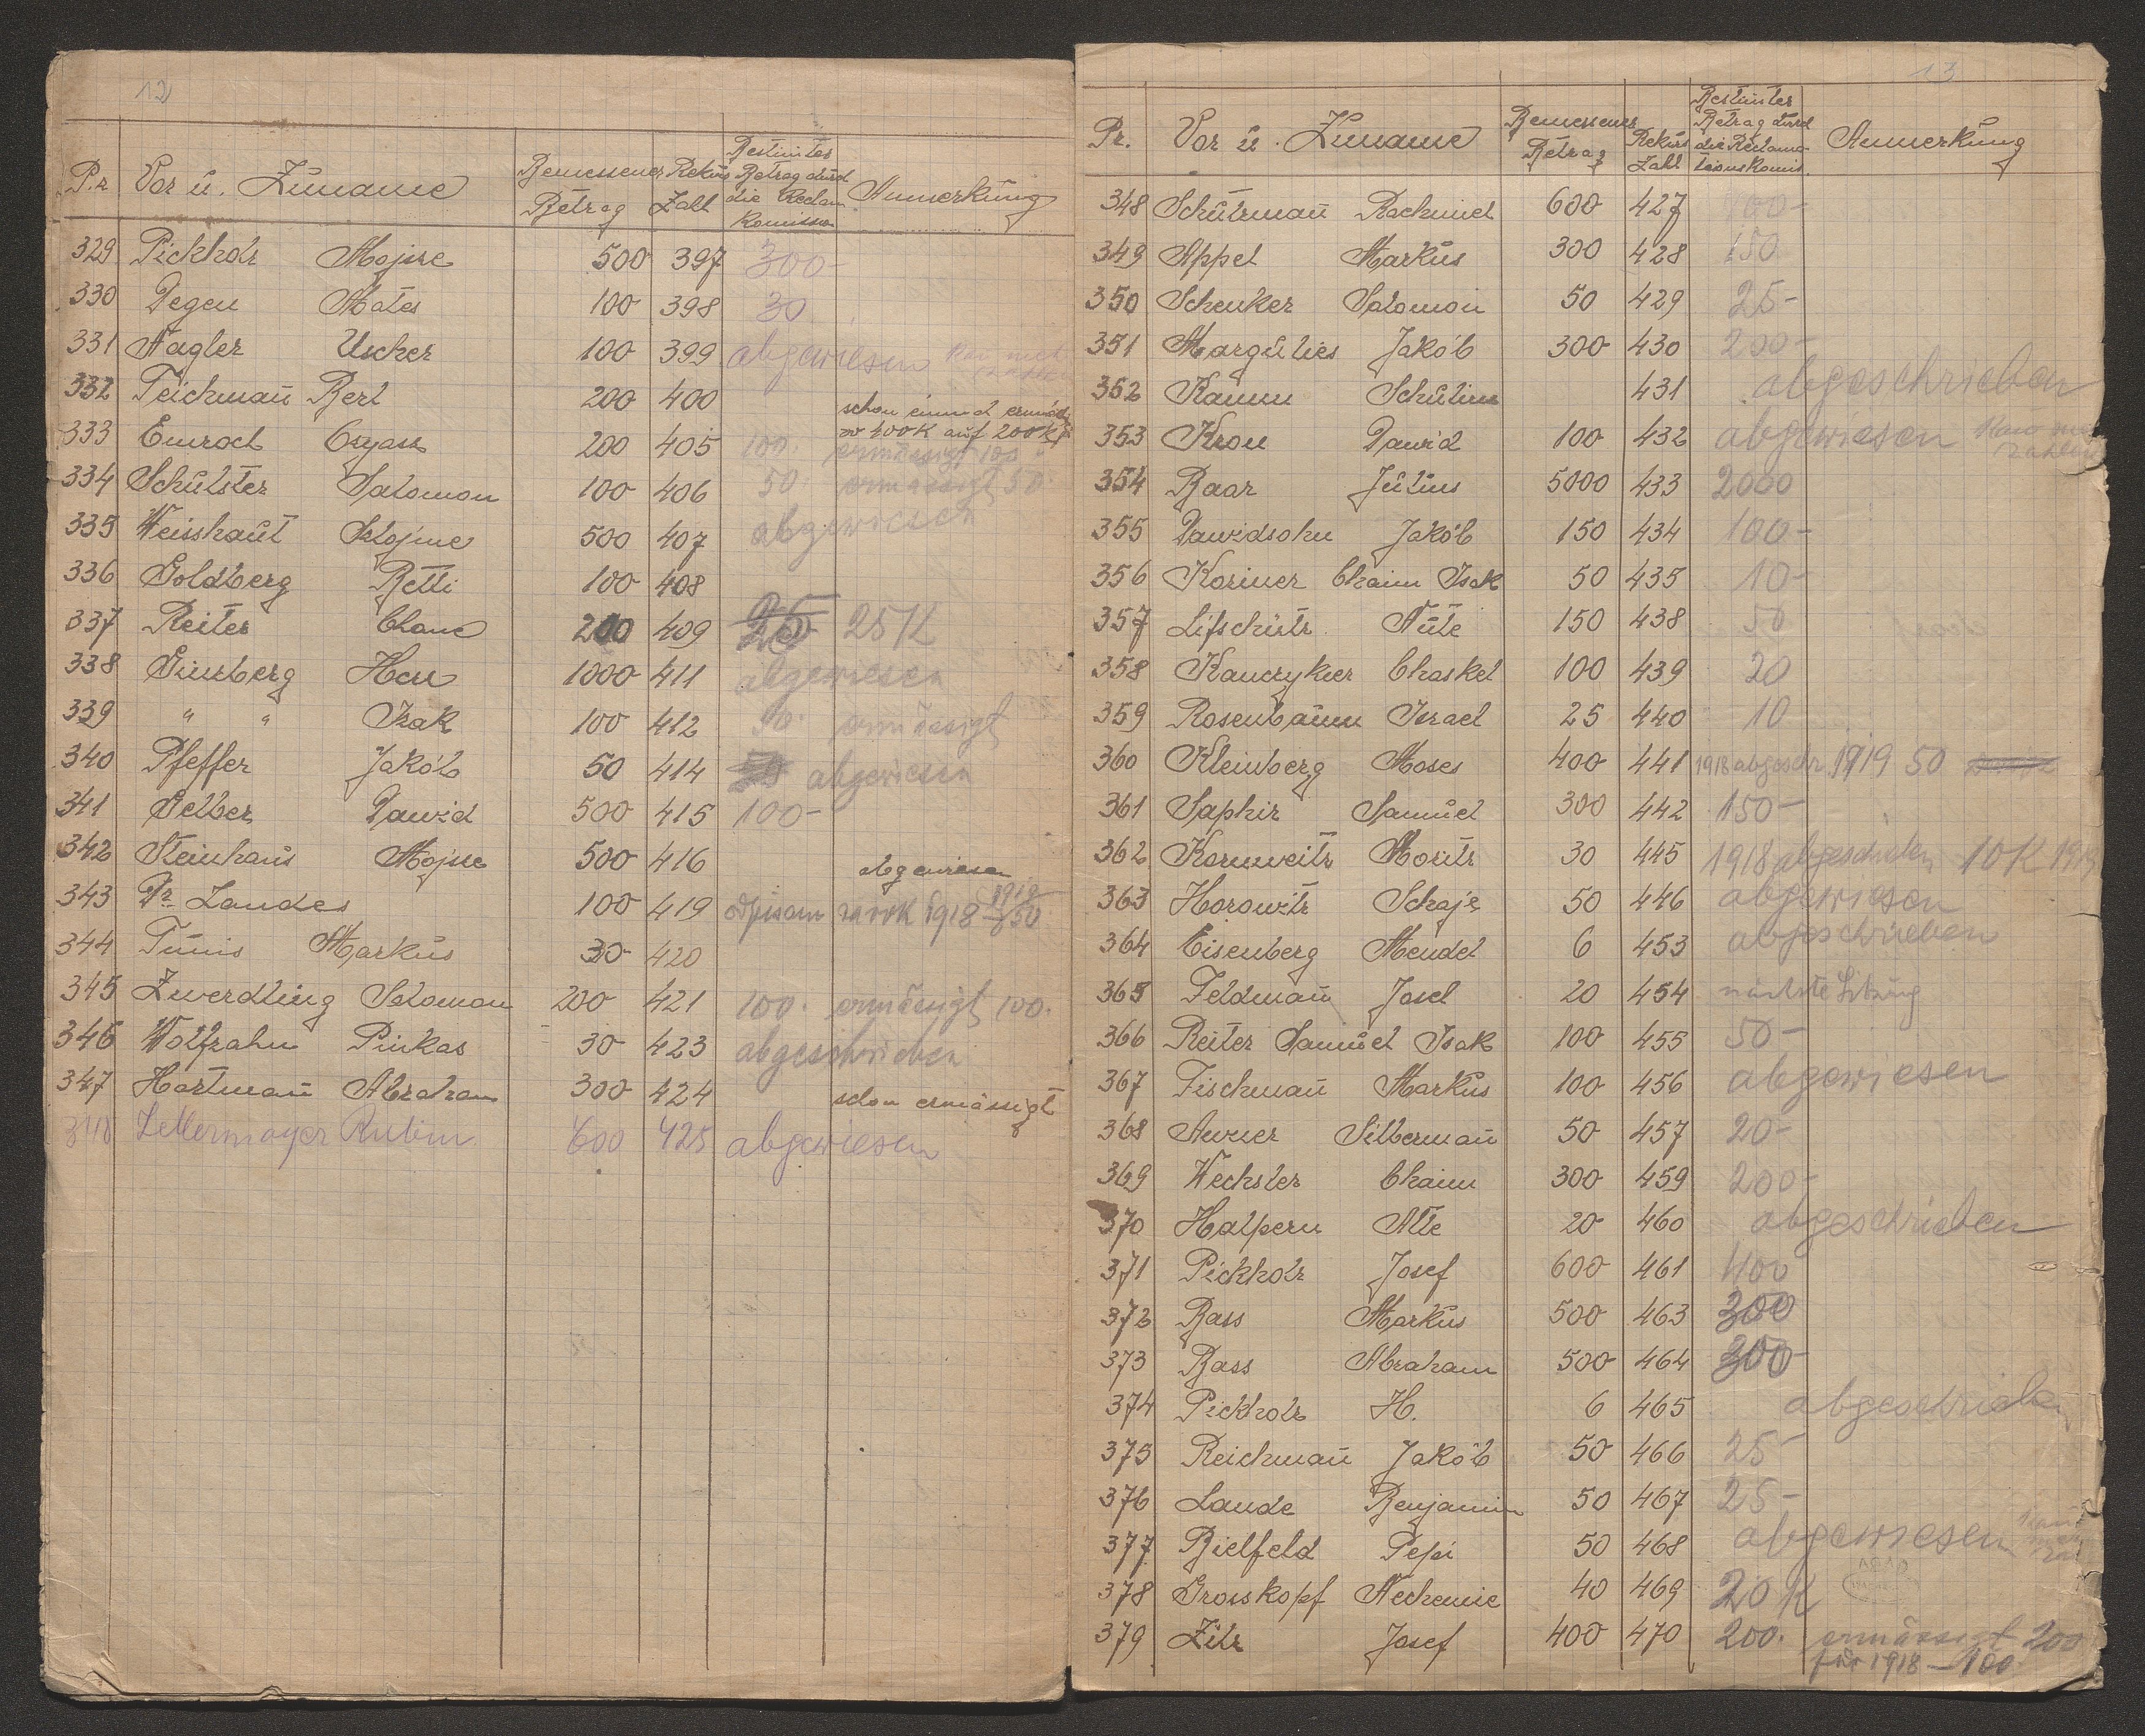 12
P.r Vor u. Zuname Bemessener Betrag Rekurs Zahl Bestimter Betrag durch die Reclam Komission Anmerkung
329 Pickholz Mojsze 500 397 300-
330 Degen Mates 100 398 30
331 Nagler Uscher 100 399 abgewiesen
332 Teichmañ Berl 200 400 schon einmal ermäss.
333 Emroch Osyass 200 405 100. vo 400K auf 200K ermässigt 100
334 Schulster Salomon 100 406 50. ermässigt 50.
335 Weisshaut Szlojme 500 407 abgewiesen
336 Goldberg Betti 100 408
337 Reiter Chane 200 409 25 25 K
338 Ginzberg Hers 1000 411 abgewiesen
339 " " Izak 100 412 50. ermässigt
340 Pfeffer Jakób 50 414 50 abgewiesen
341 Gelber Dawid 500 415 100-
342 Steinhaus Mojsze 500 416 abgewiesen
343 Dr Landes 100 419 odpisam za rok 1918 1919 50
344 Tunis Markus 30 420
345 Zwerdling Salomon 200 421 100. ermässigt 100.
346 Wolfzahn Pinkas 30 423 abgeschrieben
347 Hartmañ Abraham 300 424 schon ermässigt
348 Lellermayer Rubin 600 425 abgewiesen
13
Pr. Vor u. Zuname Bemessener Betrag Rekurs Zahl Bestimter Betrag durch die Reclamationskomis. Anmerkung
348 Schutzmañ Rachmiel 600 427
349 Appel Markus 300 428 150
350 Schenker Salomon 50 429 25-
351 Margulies Jakób 300 430 200-
352 Kamm Schulim 431 abgeschrieben
353 Kron Dawid 100 432 abgewiesen
354 Baar Julius 5000 433 2000
355 Dawidsohn Jakób 150 434 100-
356 Koriner Chaim Isak 50 435 10-
357 Lifschütz Nute 150 438 50
358 Kanczyker Chaskel 100 439 20
359 Rosenbaum Israel 25 440 10
360 Kleinberg Moses 400 441 1918 abgeschr. 1919 50
361 Saphir Samuel 300 442 150-
362 Kornweitz Moritz 30 445 1918 abgeschrieben 10K 1919
363 Horowitz Schaje 50 446 abgewiesen
364 Eisenberg Mendel 6 453 abgeschrieben
365 Feldmañ Josel 20 454 nächste Sitzung
366 Reiter Samuel Isak 100 455 50-
367 Fischmañ Markus 100 456 abgewiesen
368 Awner Silbermañ 50 457 20-
369 Wechsler Chaim 300 459 200-
370 Halpern Alte 20 460 abgeschrieben
371 Pickholz Josef 600 461 400
372 Bass Markus 500 463 300
373 Bass Abraham 500 464 300-
374 Pickholz H. 6 465 abgeschrieben
375 Reichmañ Jakób 50 466 25-
376 Lande Benjamin 50 467 25-
377 Bielfeld Pepi 50 468 abgewiesen
378 Grosskopf Nechemie 40 469 20 K
379 Zilz Josef 400 470 200. ermässigt 200
für 1918 - 100